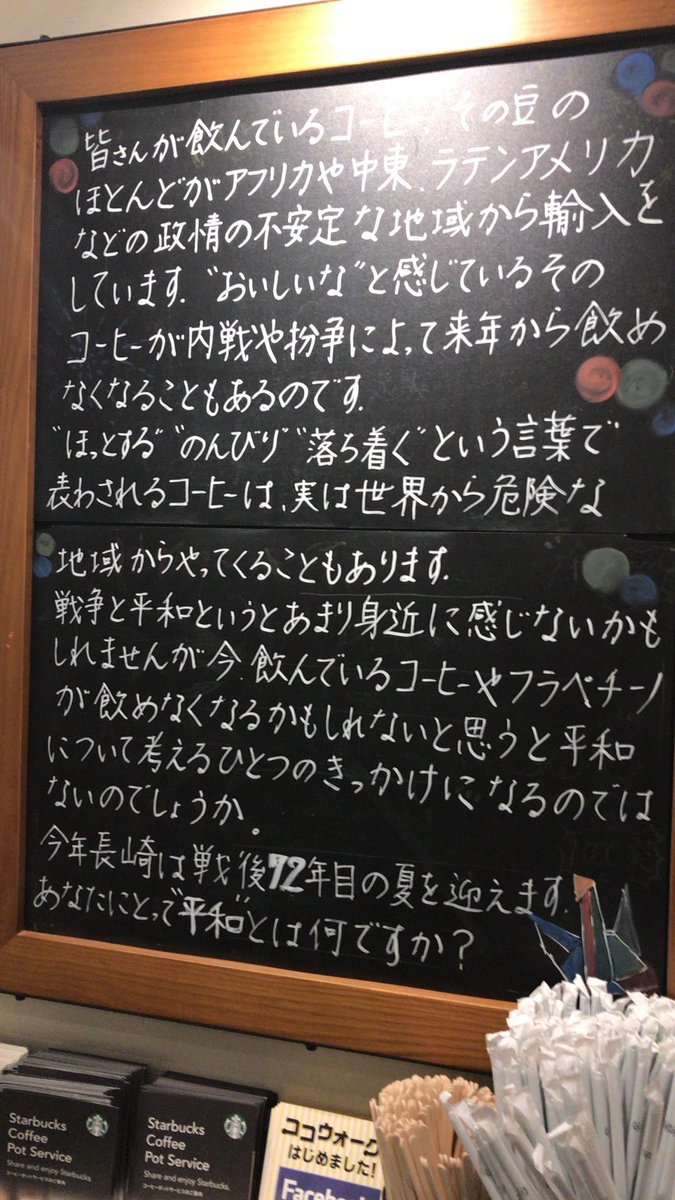 皆さんが飲んでいるコーヒー、その豆の
ほとんどがアフリカや中東、ラテンアメリカ
などの政情の不安定な地域から輸入を
しています。"おいしいな"と感じているその
コーヒーが内戦や紛争によって来年から飲め
なくなることもあるのです。
"ほっとする""のんびり""落ち着く"という言葉で
表わされるコーヒーは、実は世界から危険な
地域からやってくることもあります。
戦争と平和というとあまり身近に感じないかも
しれませんが今、飲んでいるコーヒーやフラペチーノ
が飲めなくなるかもしれないと思うと平和
について考えるひとつのきっかけになるのでは
ないのでしょうか。
今年長崎は戦後72年目の夏を迎えます。
あなたにとって"平和"とは何ですか?
Starbucks
Coffee
Pot Service
Share and enjoy Starbucks.
コーヒーポットサービスのご案内
Starbucks
Coffee
Pot Service
Share and enjoy Starbucks.
コーヒーポットサービスのご案内
ココウォーク
はじめました!
Facebook